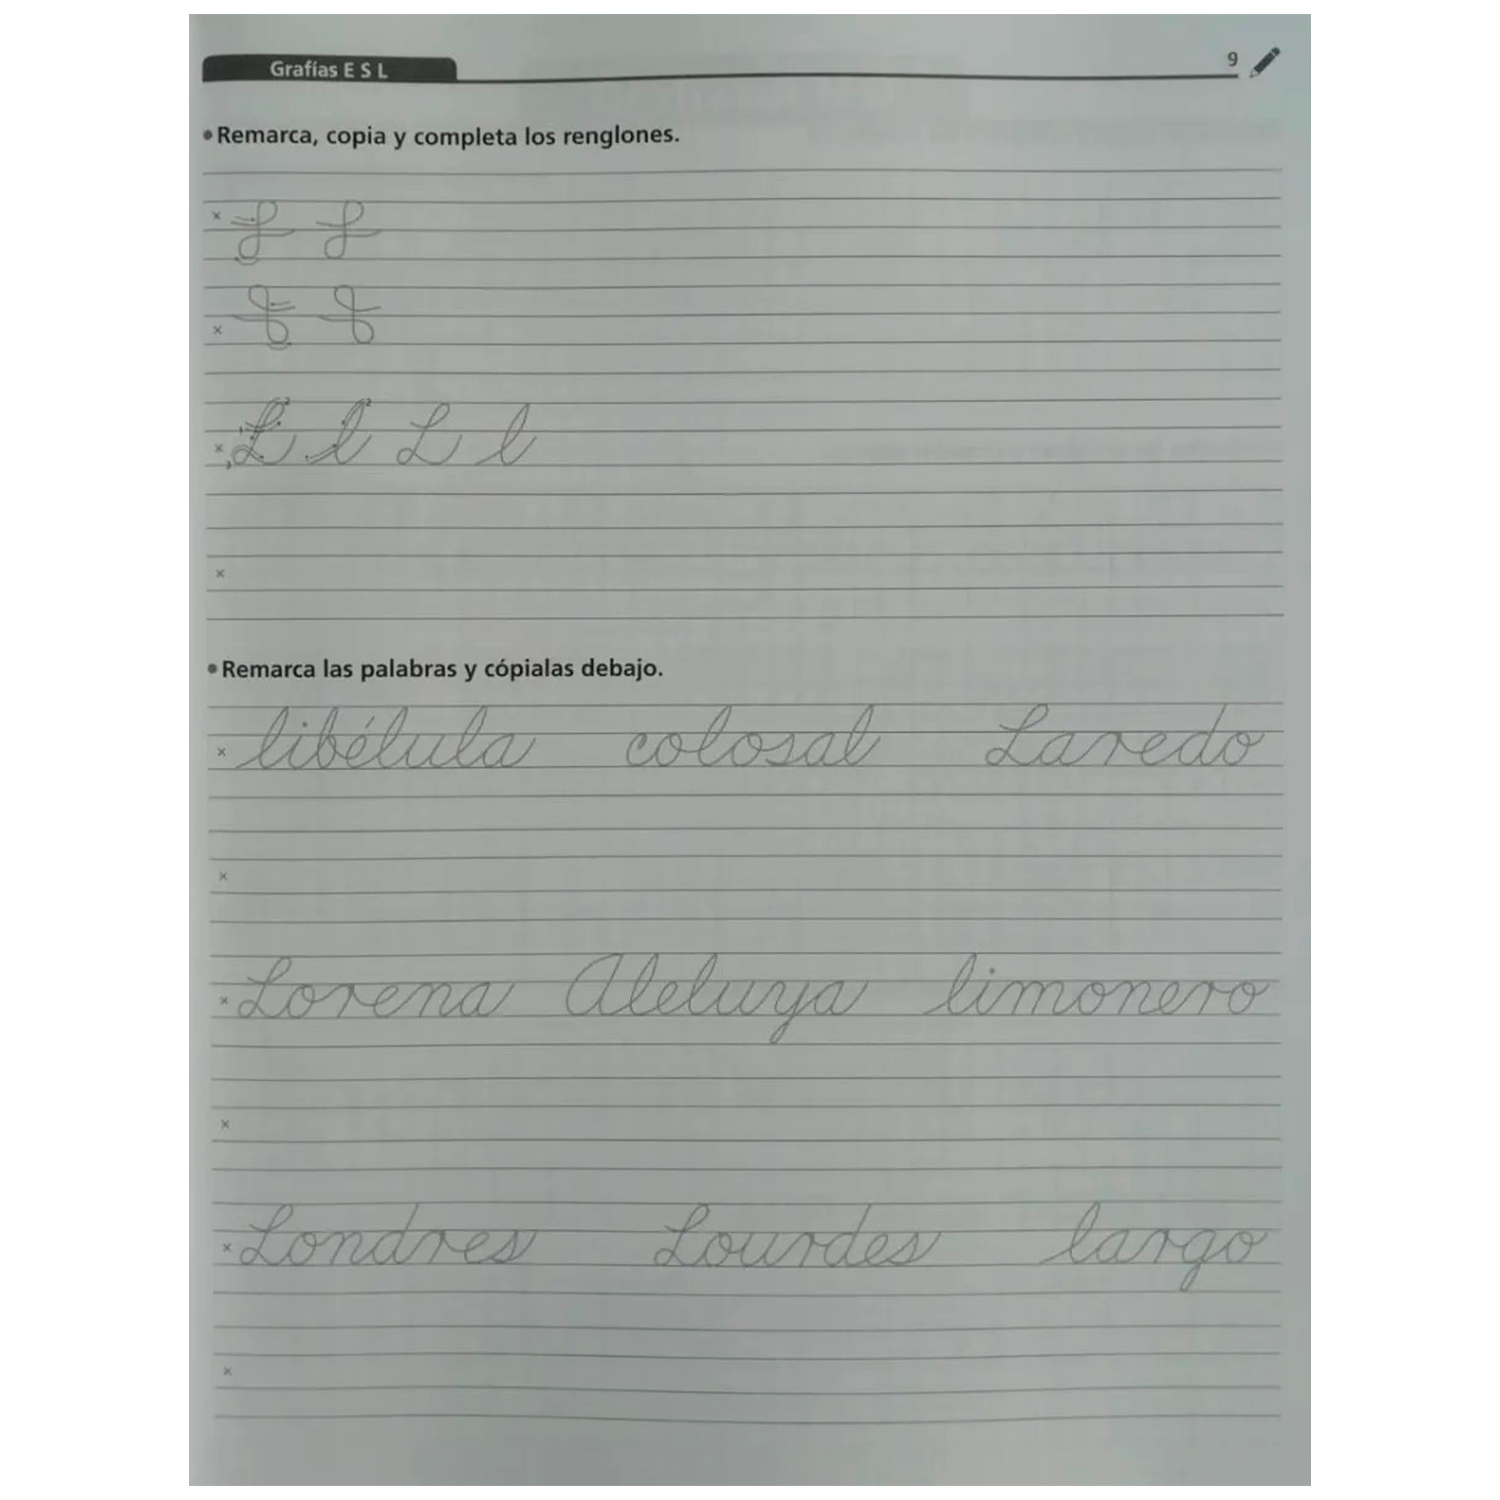 Grafías E S L
9
• Remarca, copia y completa los renglones.
L l L l
• Remarca las palabras y cópialas debajo.
libélula colosal Laredo
Lorena Aleluya limonero
Londres Lourdes largo